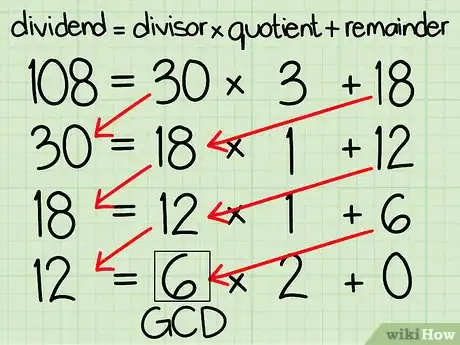 dividend = divisor × quotient + remainder
108 = 30 × 3 + 18
30 = 18 × 1 + 12
18 = 12 × 1 + 6
12 = 6 × 2 + 0
GCD
wikiHow